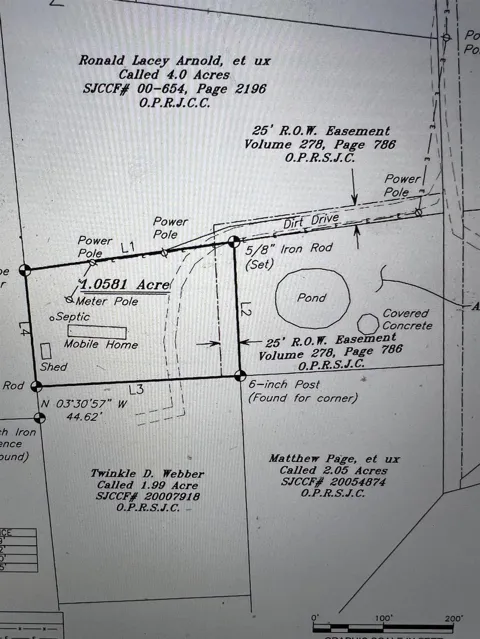 Ronald Lacey Arnold, et ux
Called 4.0 Acres
SJCCF# 00-654, Page 2196
O.P.R.J.C.C.
25' R.O.W. Easement
Volume 278, Page 786
O.P.R.S.J.C.
Power
Pole
Dirt Drive
Power
Pole
L1
Power
Pole
5/8" Iron Rod
(Set)
1.0581 Acre
Meter Pole
Septic
Mobile Home
Shed
L4
L2
L3
Pond
Covered
Concrete
25' R.O.W. Easement
Volume 278, Page 786
O.P.R.S.J.C.
Rod
6-inch Post
(Found for corner)
N 03°30'57" W
44.62'
Iron
Twinkle D. Webber
Called 1.99 Acre
SJCCF# 20007918
O.P.R.S.J.C.
Matthew Page, et ux
Called 2.05 Acres
SJCCF# 20054874
O.P.R.S.J.C.
0' 100' 200'